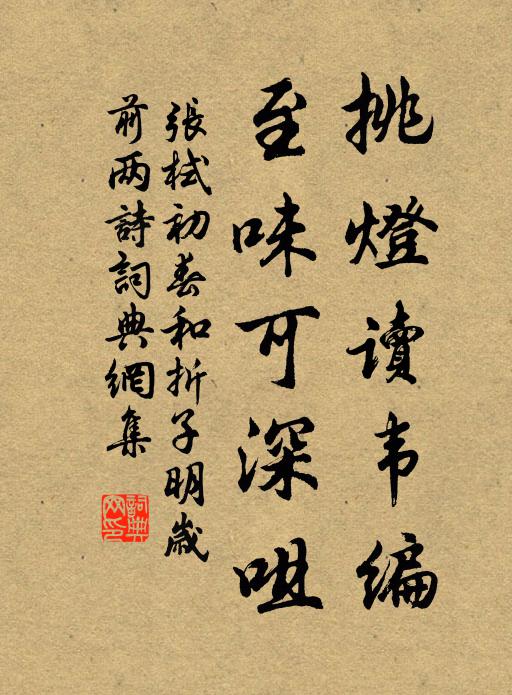 挑燈读韦编
至味可深咀
張栻初春和折子明歲
前两詩詞典網集
詞典
网印